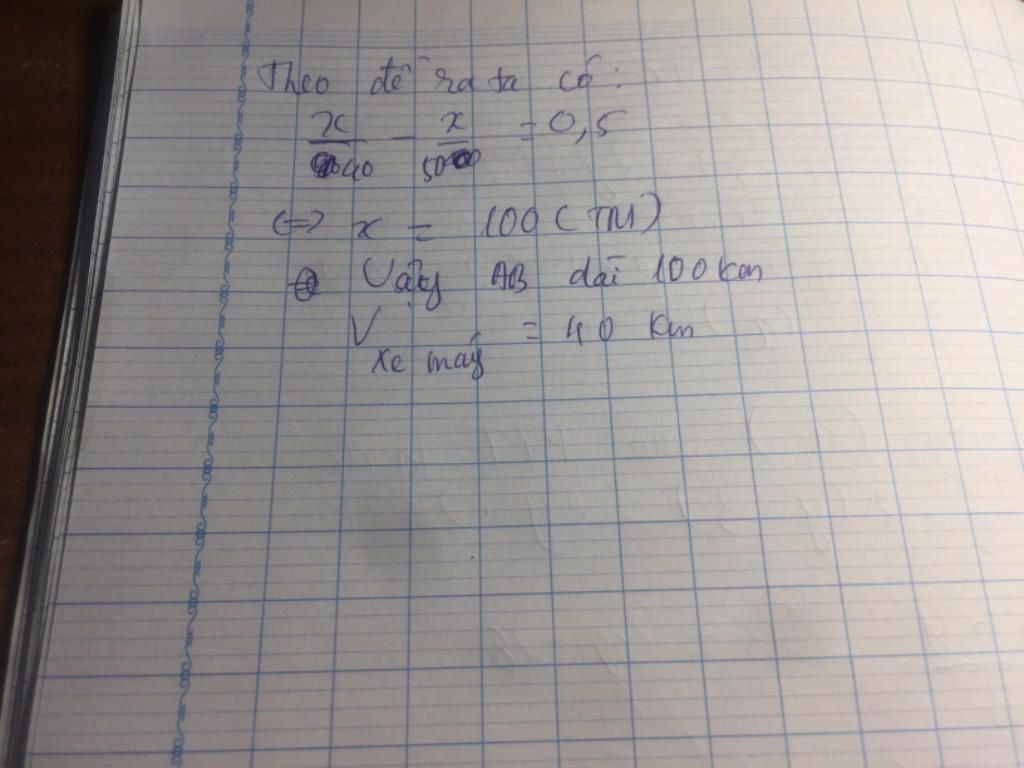 Theo đề ra ta có:
x/40 - x/50 = 0,5
(=) x = 100 (TM)
Vậy AB dài 100 km
V xe máy = 40 km